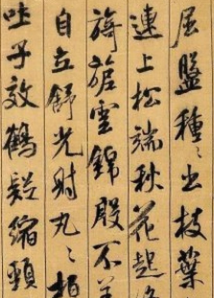 屈盤種々出枝葉
連上松端秋花起
旖旎雲錦殷不羞
自立舒光射丸々柏
吐子效鶴疑縮頸